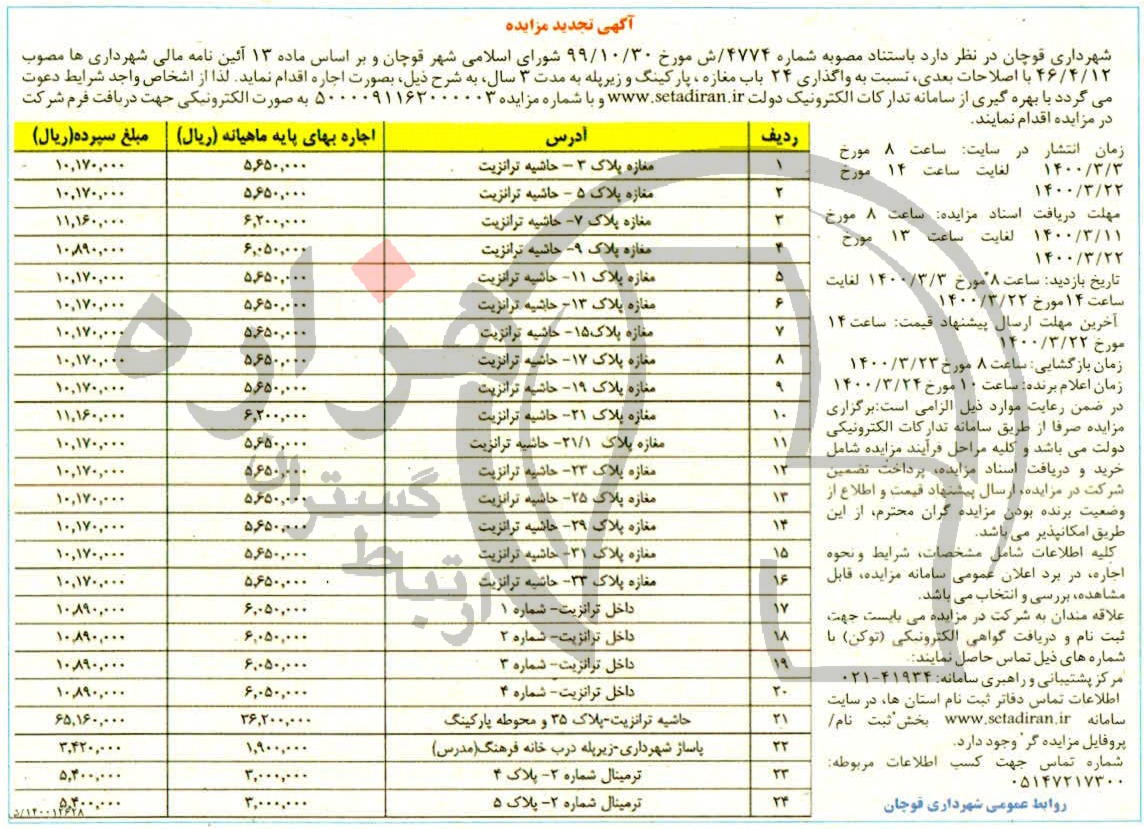 آگهی تجدید مزایده
شهرداری قوچان در نظر دارد باستناد مصوبه شماره ۴۷۷۴/ش مورخ ۹۹/۱۰/۳۰ شورای اسلامی شهر قوچان و بر اساس ماده ۱۳ آئین نامه مالی شهرداری ها مصوب
۴۶/۴/۱۲ با اصلاحات بعدی، نسبت به واگذاری ۲۴ باب مغازه ، پارکینگ و زیرپله به مدت ۳ سال، به شرح ذیل، بصورت اجاره اقدام نماید. لذا از اشخاص واجد شرایط دعوت
می گردد با بهره گیری از سامانه تدارکات الکترونیک دولت www.setadiran.ir و با شماره مزایده ۵۰۰۰۰۹۱۱۶۲۰۰۰۰۰۳ به صورت الکترونیکی جهت دریافت فرم شرکت
در مزایده اقدام نمایند.
زمان انتشار در سایت: ساعت ۸ مورخ
۱۴۰۰/۳/۳ لغایت ساعت ۱۴ مورخ
۱۴۰۰/۳/۲۲
مهلت دریافت اسناد مزایده: ساعت ۸ مورخ
۱۴۰۰/۳/۱۱ لغایت ساعت ۱۳ مورخ
۱۴۰۰/۳/۲۲
تاریخ بازدید: ساعت ۸ مورخ ۱۴۰۰/۳/۳ لغایت
ساعت ۱۴ مورخ ۱۴۰۰/۳/۲۲
آخرین مهلت ارسال پیشنهاد قیمت: ساعت ۱۴
مورخ ۱۴۰۰/۳/۲۲
زمان بازگشایی: ساعت ۸ مورخ ۱۴۰۰/۳/۲۳
زمان اعلام برنده: ساعت ۱۰ مورخ ۱۴۰۰/۳/۲۴
در ضمن رعایت موارد ذیل الزامی است:برگزاری
مزایده صرفا از طریق سامانه تدارکات الکترونیکی
دولت می باشد و کلیه مراحل فرآیند مزایده شامل
خرید و دریافت اسناد مزایده، پرداخت تضمین
شرکت در مزایده، ارسال پیشنهاد قیمت و اطلاع از
وضعیت برنده بودن مزایده گران محترم، از این
طریق امکانپذیر می باشد.
کلیه اطلاعات شامل مشخصات، شرایط و نحوه
اجاره، در برد اعلان عمومی سامانه مزایده، قابل
مشاهده، بررسی و انتخاب می باشد.
علاقه مندان به شرکت در مزایده می بایست جهت
ثبت نام و دریافت گواهی الکترونیکی (توکن) با
شماره های ذیل تماس حاصل نمایند:
مرکز پشتیبانی و راهبری سامانه: ۴۱۹۳۴-۰۲۱
اطلاعات تماس دفاتر ثبت نام استان ها، در سایت
سامانه www.setadiran.ir بخش"ثبت نام/
پروفایل مزایده گر" وجود دارد.
شماره تماس جهت کسب اطلاعات مربوطه:
۰۵۱۴۷۲۱۷۳۰۰
روابط عمومی شهرداری قوچان
ردیف آدرس اجاره بهای پایه ماهیانه (ریال) مبلغ سپرده(ریال)
۱ مغازه پلاک ۳ - حاشیه ترانزیت ۵,۶۵۰,۰۰۰ ۱۰,۱۷۰,۰۰۰
۲ مغازه پلاک ۵ - حاشیه ترانزیت ۵,۶۵۰,۰۰۰ ۱۰,۱۷۰,۰۰۰
۳ مغازه پلاک ۷- حاشیه ترانزیت ۶,۲۰۰,۰۰۰ ۱۱,۱۶۰,۰۰۰
۴ مغازه پلاک ۹- حاشیه ترانزیت ۶,۰۵۰,۰۰۰ ۱۰,۸۹۰,۰۰۰
۵ مغازه پلاک ۱۱- حاشیه ترانزیت ۵,۶۵۰,۰۰۰ ۱۰,۱۷۰,۰۰۰
۶ مغازه پلاک ۱۳- حاشیه ترانزیت ۵,۶۵۰,۰۰۰ ۱۰,۱۷۰,۰۰۰
۷ مغازه پلاک۱۵- حاشیه ترانزیت ۵,۶۵۰,۰۰۰ ۱۰,۱۷۰,۰۰۰
۸ مغازه پلاک ۱۷- حاشیه ترانزیت ۵,۶۵۰,۰۰۰ ۱۰,۱۷۰,۰۰۰
۹ مغازه پلاک ۱۹- حاشیه ترانزیت ۵,۶۵۰,۰۰۰ ۱۰,۱۷۰,۰۰۰
۱۰ مغازه پلاک ۲۱- حاشیه ترانزیت ۶,۲۰۰,۰۰۰ ۱۱,۱۶۰,۰۰۰
۱۱ مغازه پلاک ۲۱/۱- حاشیه ترانزیت ۵,۶۵۰,۰۰۰ ۱۰,۱۷۰,۰۰۰
۱۲ مغازه پلاک ۲۳- حاشیه ترانزیت ۵,۶۵۰,۰۰۰ ۱۰,۱۷۰,۰۰۰
۱۳ مغازه پلاک ۲۵- حاشیه ترانزیت ۵,۶۵۰,۰۰۰ ۱۰,۱۷۰,۰۰۰
۱۴ مغازه پلاک ۲۹- حاشیه ترانزیت ۵,۶۵۰,۰۰۰ ۱۰,۱۷۰,۰۰۰
۱۵ مغازه پلاک ۳۱- حاشیه ترانزیت ۵,۶۵۰,۰۰۰ ۱۰,۱۷۰,۰۰۰
۱۶ مغازه پلاک ۳۳- حاشیه ترانزیت ۵,۶۵۰,۰۰۰ ۱۰,۱۷۰,۰۰۰
۱۷ داخل ترانزیت- شماره ۱ ۶,۰۵۰,۰۰۰ ۱۰,۸۹۰,۰۰۰
۱۸ داخل ترانزیت- شماره ۲ ۶,۰۵۰,۰۰۰ ۱۰,۸۹۰,۰۰۰
۱۹ داخل ترانزیت- شماره ۳ ۶,۰۵۰,۰۰۰ ۱۰,۸۹۰,۰۰۰
۲۰ داخل ترانزیت- شماره ۴ ۶,۰۵۰,۰۰۰ ۱۰,۸۹۰,۰۰۰
۲۱ حاشیه ترانزیت-پلاک ۳۵ و محوطه پارکینگ ۳۶,۲۰۰,۰۰۰ ۶۵,۱۶۰,۰۰۰
۲۲ پاساژ شهرداری-زیرپله درب خانه فرهنگ(مدرس) ۱,۹۰۰,۰۰۰ ۳,۴۲۰,۰۰۰
۲۳ ترمینال شماره ۲- پلاک ۴ ۳,۰۰۰,۰۰۰ ۵,۴۰۰,۰۰۰
۲۴ ترمینال شماره ۲- پلاک ۵ ۳,۰۰۰,۰۰۰ ۵,۴۰۰,۰۰۰
۱۴۰۰۱۲۶۲۸/د
هزاره
ارتباط گستران